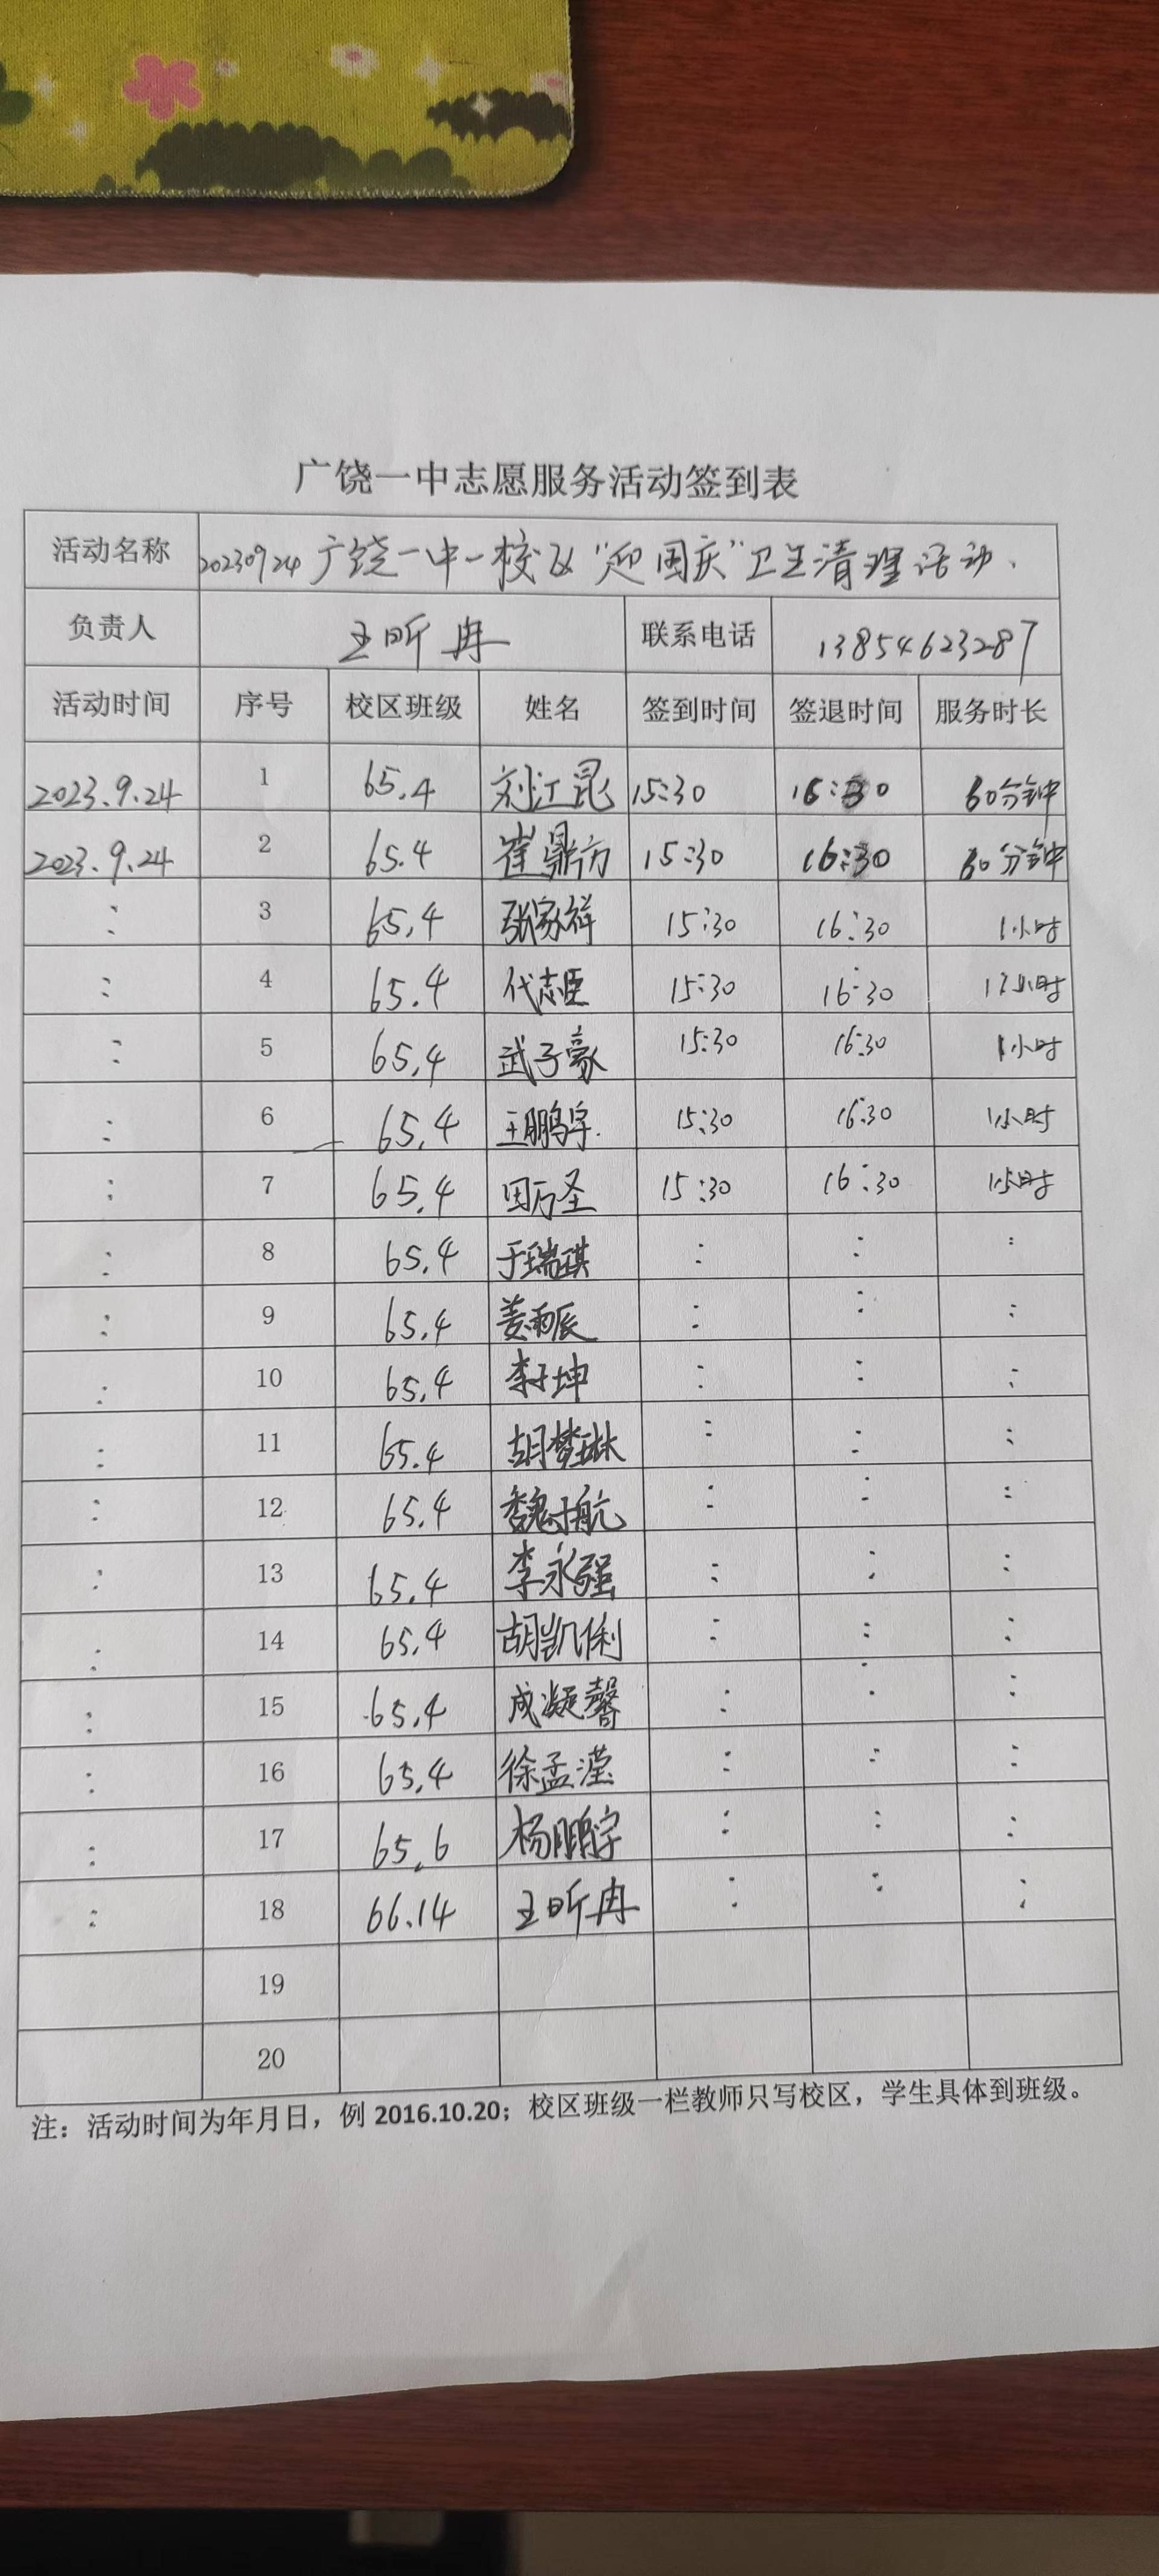 广饶一中志愿服务活动签到表
活动名称 20230924广饶一中一校区"迎国庆"卫生清理活动.
负责人 王昕冉 联系电话 13854623287
活动时间 序号 校区班级 姓名 签到时间 签退时间 服务时长
2023.9.24 1 65.4 刘江昆 15:30 16:30 60分钟
2023.9.24 2 65.4 崔鼎方 15:30 16:30 60分钟
: 3 65.4 张家祥 15:30 16:30 1小时
: 4 65.4 代志臣 15:30 16:30 小时
: 5 65.4 武子豪 15:30 16:30 1小时
: 6 65.4 王鹏宇 15:30 16:30 1小时
: 7 65.4 田万圣 15:30 16:30 1小时
: 8 65.4 于瑞琪 : : :
: 9 65.4 姜雨辰 : : :
: 10 65.4 李子坤 : : :
: 11 65.4 胡梦琳 : : :
: 12 65.4 : : :
: 13 65.4 李永强 : : :
: 14 65.4 胡凯俐 : : :
: 15 65.4 成凝馨 : : :
: 16 65.4 徐孟滢 : : :
: 17 65.6 杨鹏宇 : : :
: 18 66.14 王昕冉 : : :
19
20
注：活动时间为年月日，例 2016.10.20；校区班级一栏教师只写校区，学生具体到班级。